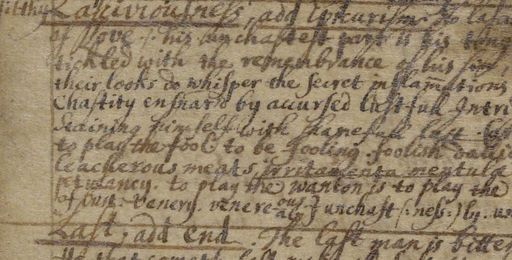 filthy Lasciviousness, add Epicurism. to lasci
of Love /: his unchastest part is his tong
tickled with the remembrance of his sin
their looks do whisper the secret inflam̄ations
Chastity ensnar'd by accursed lustfull Intri
Staining himself with shamefull lust.
to play the fool to be fooling. foolish
leacherous meats, irritamenta
petulancy. to play the wanton is to play the
of Lust. Venery. venere ous al } unchast /:ness:/ ly.
Last, add end. The last man is bitte
that cometh last